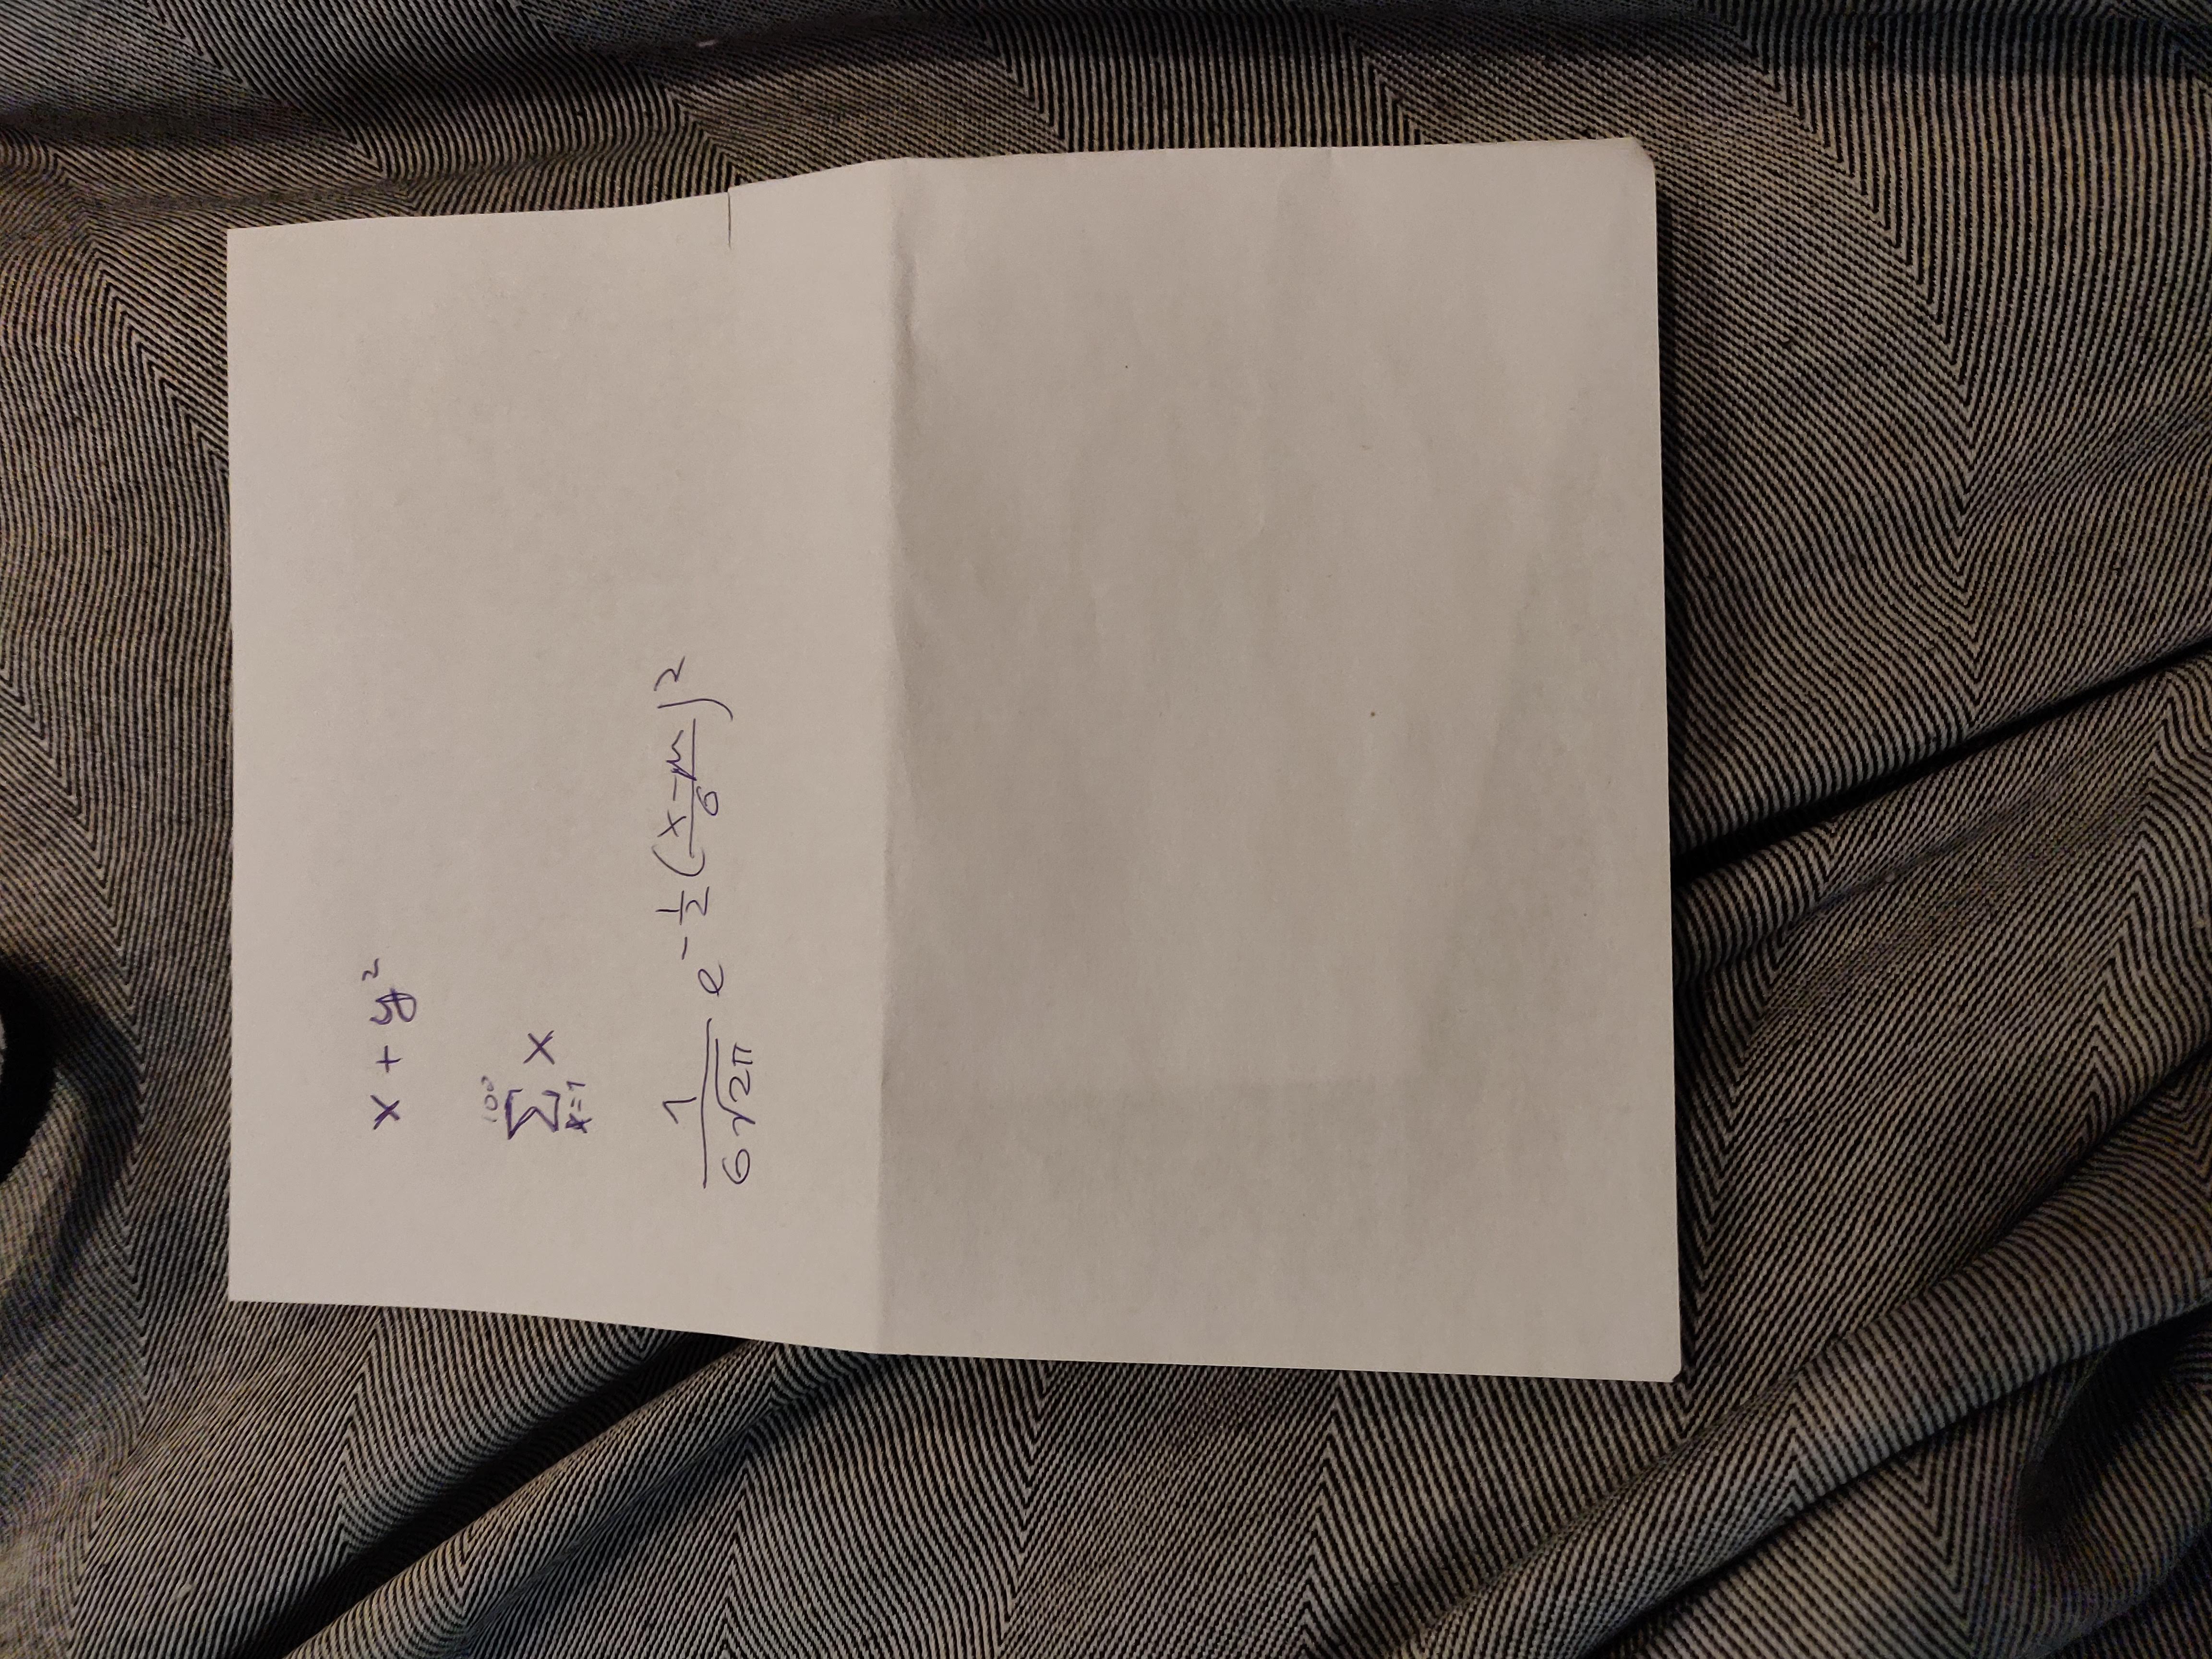 x + y²
∑_{x=1}^{100} x
\frac{1}{σ\sqrt{2π}} e^{-\frac{1}{2}(\frac{x-μ}{σ})^2}